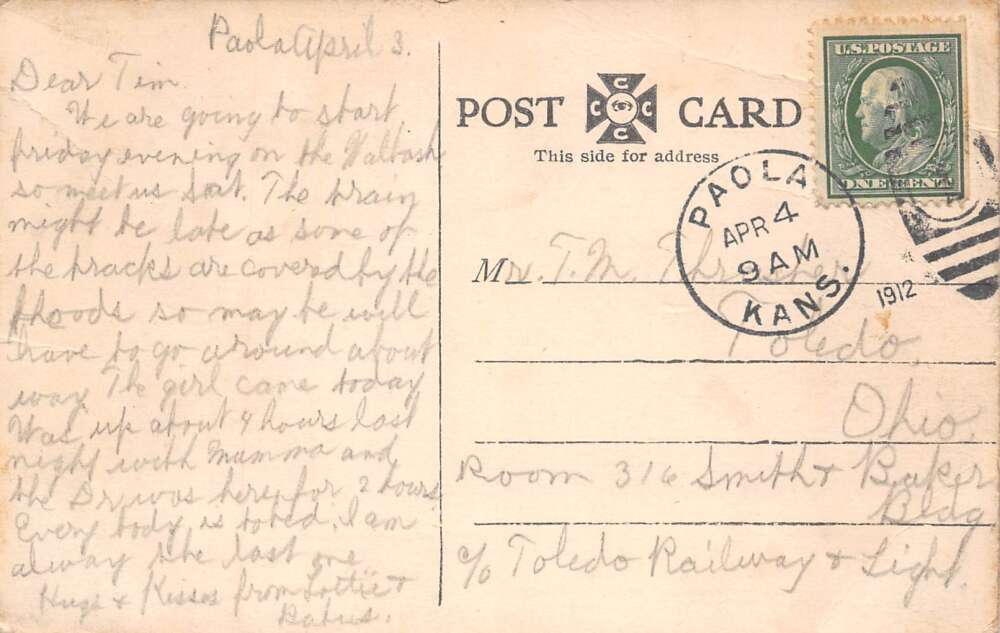 Paola April 3.
Dear Tim
We are going to start
friday evening on the Walbash
so meet us Sat. The train
might be late as some of
the tracks are covered by the
floods so may be will
have to go around about
way The girl came today
Was up about 4 hours last
night with Mamma and
the Dr. was here for 2 hours
Every body is to bed. I am
alway the last one
Hugs & Kisses from Lottie &
Babies.
POST CARD
C C C C
This side for address
U.S. POSTAGE
ONE CENT
PAOLA
APR 4
9 AM
KANS.
1912
Mr. T. M. Thrasher
Toledo,
Ohio.
Room 316 Smith & Baker
Bldg
c/o Toledo Railway & Light.